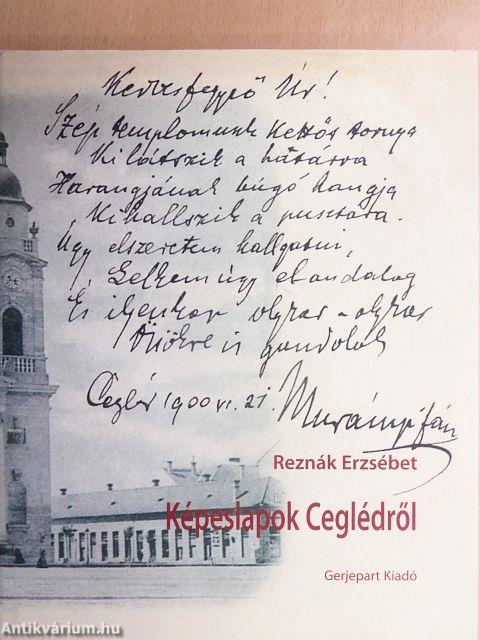 Kedves függő Úr!
Szép templomunk Kettős tornya
Ki látszik a határra
Harangjának búgó hangja
Kihallszik a pusztára.
Ugy elszeretem hallgatni,
Lelkem úgy el andalog
És ilyenkor olykor-olykor
Önökre is gondolok
Cegléd 1900 VI. 21. Murányi
Reznák Erzsébet
Képeslapok Ceglédről
Gerjepart Kiadó
Antikvárium.hu